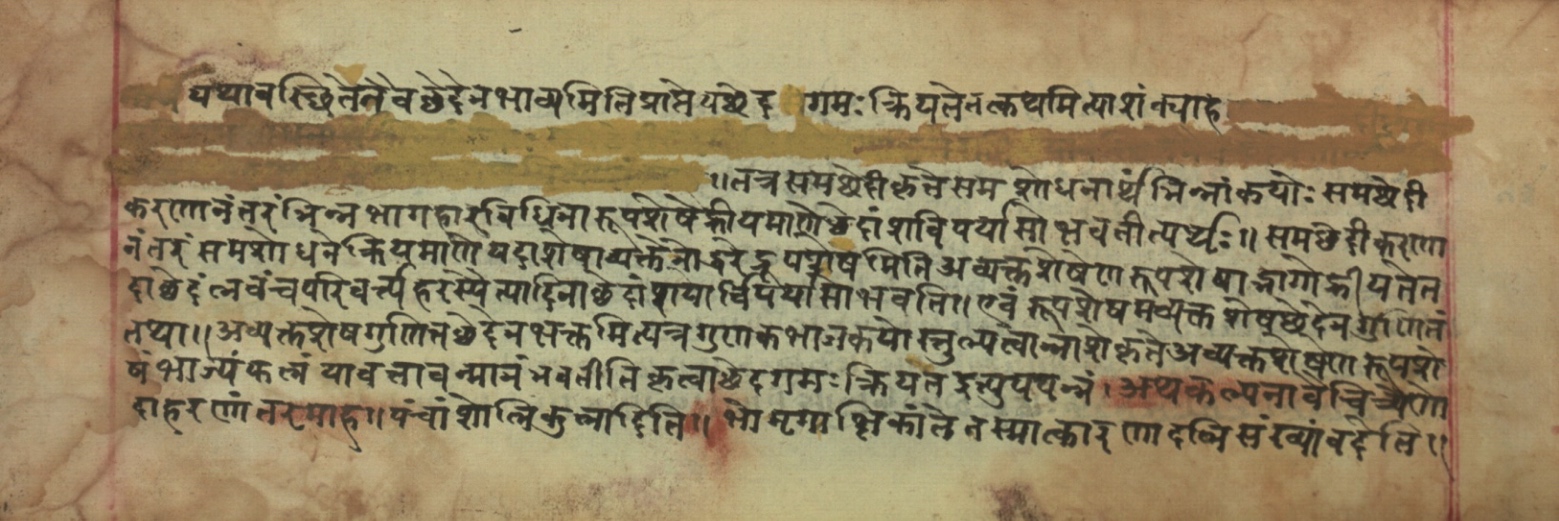 यथावस्छितेनैव छेदेन भाव्यमिति प्राप्ते यछेद गमः क्रियते तत्कथमित्याशंक्याह
॥ तत्र समछेदीकृते समशोधनार्थं भिन्नांकयोः समछेदी
करणानंतरं भिन्नभागहारविधिना रूपशेषे ह्रीयमाणे छेदांशविपर्यासो भवतीत्यर्थः ॥ समछेदीकरणा
नंतरं समशोधने क्रियमाणे यदा शेषाव्यक्तेनोद्धरेद्रूपशेषमिति अव्यक्तशेषेण रूपशेषा द्भागो ह्रीयते त
दा छेदं लवं च परिवर्त्त्य हरस्येत्यादिना छेदांशयोर्विपर्यासो भवति ॥ एवं रूपशेषमव्यक्तशेषछेदेन गुणितं
तथा ॥ अव्यक्तशेषगुणितछेदेन भक्तमित्यत्र गुणकभाजकयोस्तुल्यत्वान्नाशे कृते अव्यक्तशेषेण रूपशे
षं भाज्यं फलं यावत्तावन्मानं भवतीति कृत्वा छेदगमः क्रियत इत्युपपन्नं । अथ कल्पनावैचित्र्येणो
दाहरणांतरमाह ॥ पंचांशोलिकुलादिति ॥ भो मृगाक्षि कांते तस्मात्कारणादलिसंख्यां वदेति ॥